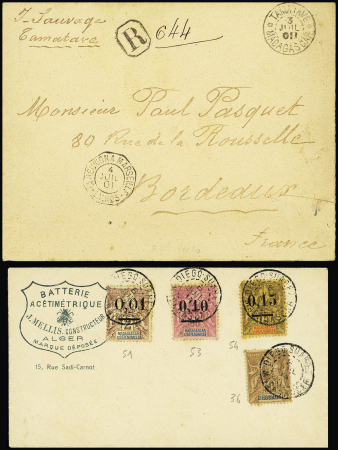 J. Sauvage
Tamatave
R
644
TAMATAVE
3
JUIL
01
MADAGASCAR
Monsieur Paul Pasquet
80 Rue de la Rousselle
LA REUNION A MARSEILLE
4
JUIL
01
Bordeaux
France
BATTERIE
ACÉTIMÉTRIQUE
J. MELLIS, CONSTRUCTEUR
ALGER
MARQUE DÉPOSÉE
15, Rue Sadi-Carnot
DIEGO-SUAREZ
0,01
0,10
0,15
51
53
54
36